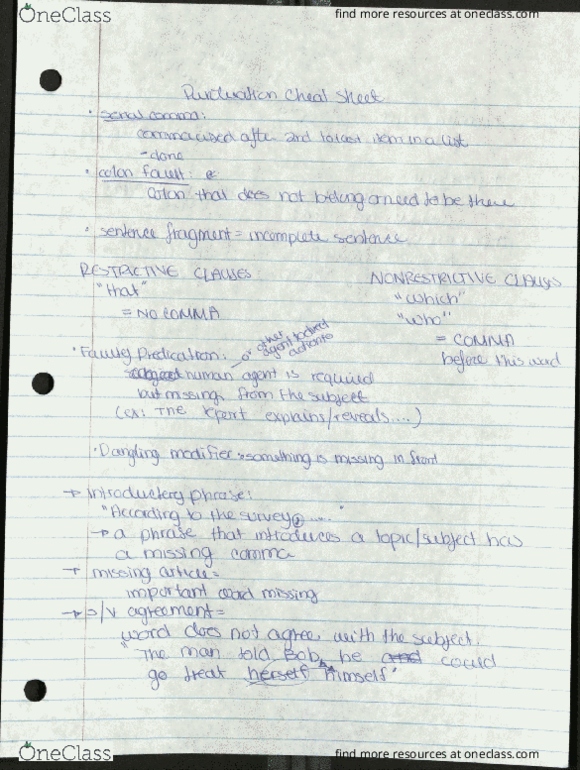 OneClass
find more resources at oneclass.com
Punctuation Cheat Sheet
· serial comma:
comma used after 2nd to last item in a list
- done
· colon fault:
colon that does not belong or need to be there
· sentence fragment = incomplete sentence
RESTRICTIVE CLAUSES
"that"
= NO COMMA
NONRESTRICTIVE CLAUSES
"which"
"who"
= COMMA
before this word
· Faulty Predication:
or other
agent to direct
activate
human agent is required
but missing from the subject
(ex: The report explains/reveals....)
· Dangling modifier: something is missing in front
→ introductory phrase:
"According to the survey, ....."
→ a phrase that introduces a topic/subject has
a missing comma
→ missing article =
important word missing
→ s/v agreement =
word does not agree with the subject.
"The man told Bob, he and could
go treat herself himself"
OneClass
find more resources at oneclass.com